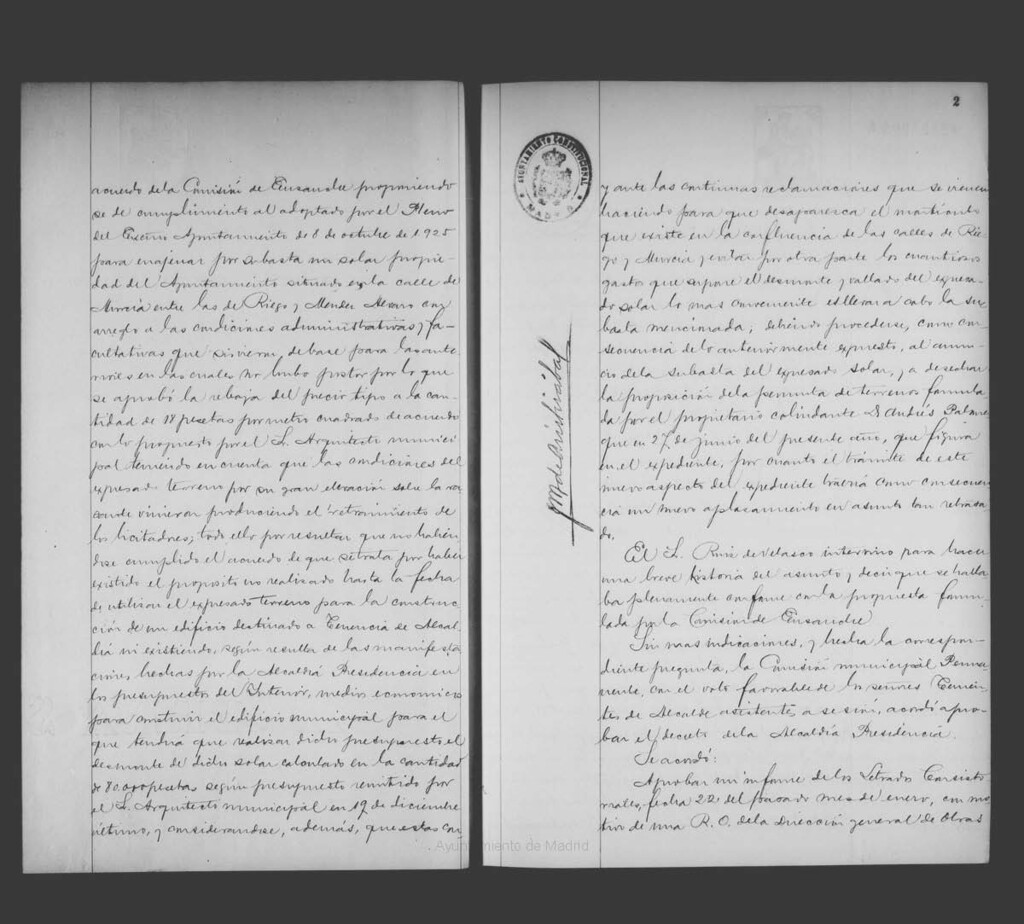 acuerdo de la Comisión de Ensanche proponiendo
se de cumplimiento al adoptado por el Pleno
del Excmo Ayuntamiento de 8 de octubre de 1925
para enagenar por subasta un solar propie-
dad del Ayuntamiento situado en la calle de
Murcia entre las de Riego y Mendez Alvaro con
arreglo a las condiciones administrativas y fa-
cultativas que sirvieran de base para las ante
riores en las cuales no hubo postor por lo que
se aprobó la rebaja del precio tipo a la can-
tidad de 18 pesetas por metro cuadrado de acuerdo
con lo propuesto por el S. Arquitecto munici
pal teniendo en cuenta que las condiciones del
expresado terreno por su gran elevación sobre la ra
sante vinieran produciendo el retraimiento de
los licitadores; todo ello por resultar que no habién
dose cumplido el acuerdo de que se trata por haber
existido el proposito no realizado hasta la fecha
de utilizar el expresado terreno para la construc
ción de un edificio destinado a Tenencia de Alcal
día ni existiendo, según resulta de las manifesta
ciones hechas por la Alcaldía Presidencia en
los presupuestos del Interior, medios economicos
para construir el edificio municipal para el
que tendría que realizar dicho presupuesto el
desmonte de dicho solar calculado en la cantidad
de 80.000 pesetas según presupuesto remitido por
el S. Arquitecto municipal en 19 de diciembre
último, y considerandose, además, que estas con
2
AYUNTAMIENTO CONSTITUCIONAL
MADRID
y ante las continuas reclamaciones que se vienen
haciendo para que desaparezca el
que existe en la confluencia de las calles de Rie
go y Murcia y evitar por otra parte los cuantiosos
gastos que supone el desmonte y vallado del expresa
do solar lo mas conveniente es llevar a cabo la su
basta mencionada; debiendo procederse, como con
secuencia de lo anteriormente expuesto, al anun
cio de la subasta del expresado solar, y a desechar
la proposición de la permuta de terrenos formula
da por el propietario colindante D. Andrés
que en 27 de junio del presente año, que figura
en el expediente, por cuanto el trámite de este
nuevo aspecto de expediente traería como consecuen
cia un nuevo aplazamiento en asunto tan retrasa
do.
El S. Ruiz de Velasco intervino para hacer
una breve historia del asunto y decir que se halla
ba plenamente conforme con la propuesta formu-
lada por la Comisión de Ensanche
Sin mas indicaciones, y hecha la correspon-
diente pregunta, la Comisión municipal Perma
nente, con el voto favorable de los señores Tenien-
tes de Alcalde asistentes a sesión, acordó apro-
bar el decreto de la Alcaldía Presidencia.
Se acordó:
Aprobar un informe de los Letrados Consisto
riales, fecha 22 del pasado mes de enero, con mo
tivo de una R. O. de la Dirección general de Obras
Ayuntamiento de Madrid